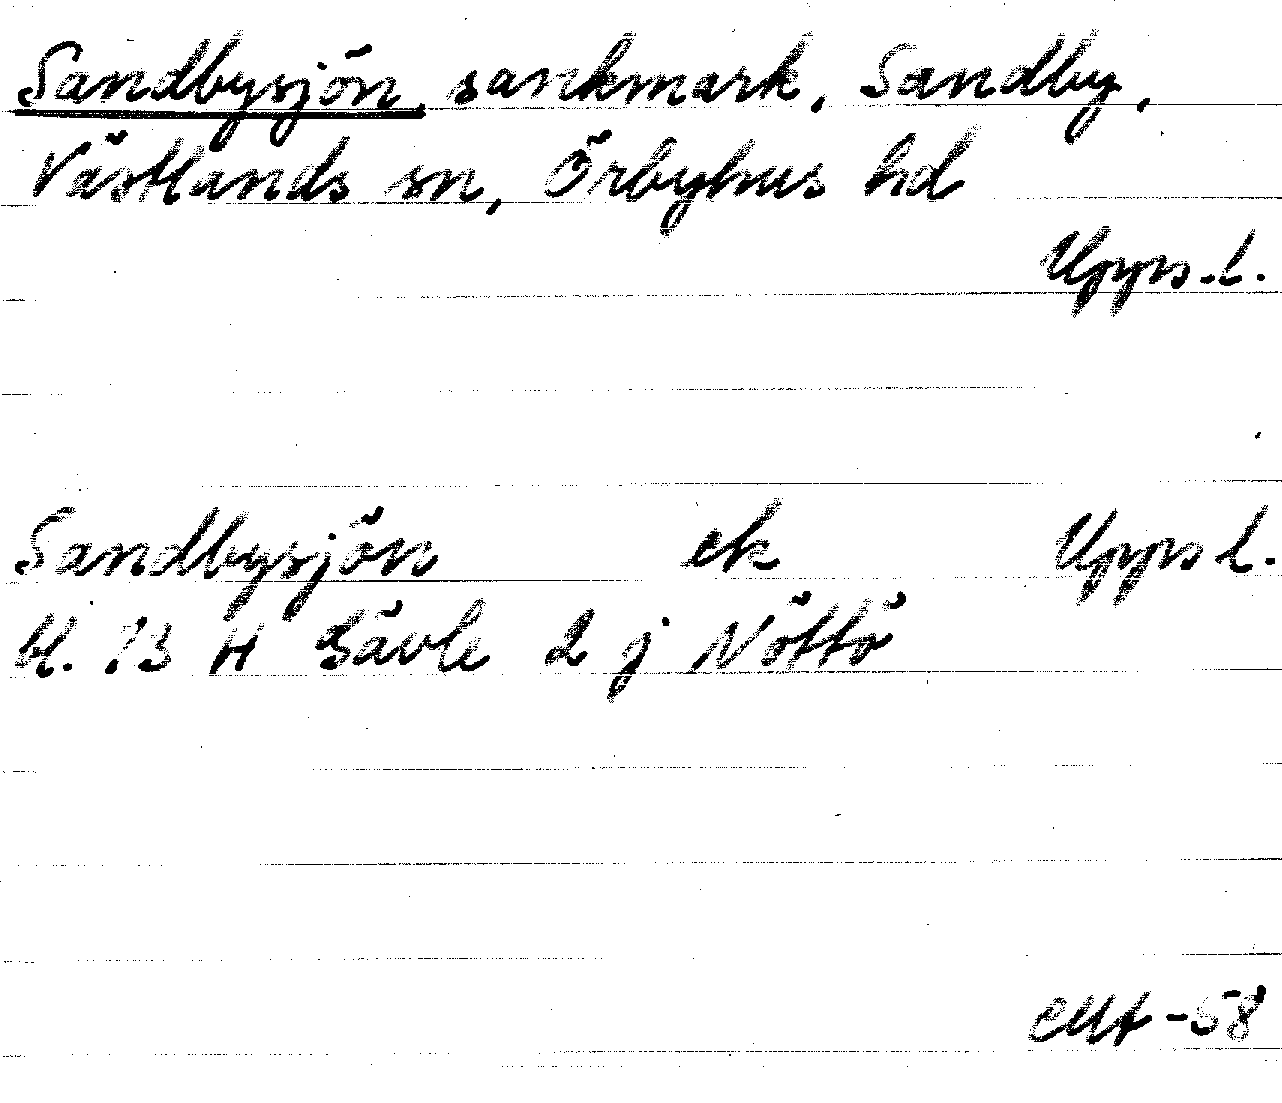 Sandbysjön, sankmark, Sandby,
Västlands sn, Örbyhus hd
Upps.l.
Sandbysjön ek Upps l.
bl. 13 H Gävle 2 j Nöttö
-58